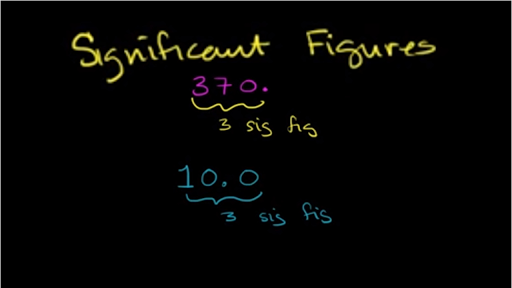 Significant Figures
370.
3 sig fig
10.0
3 sig fig